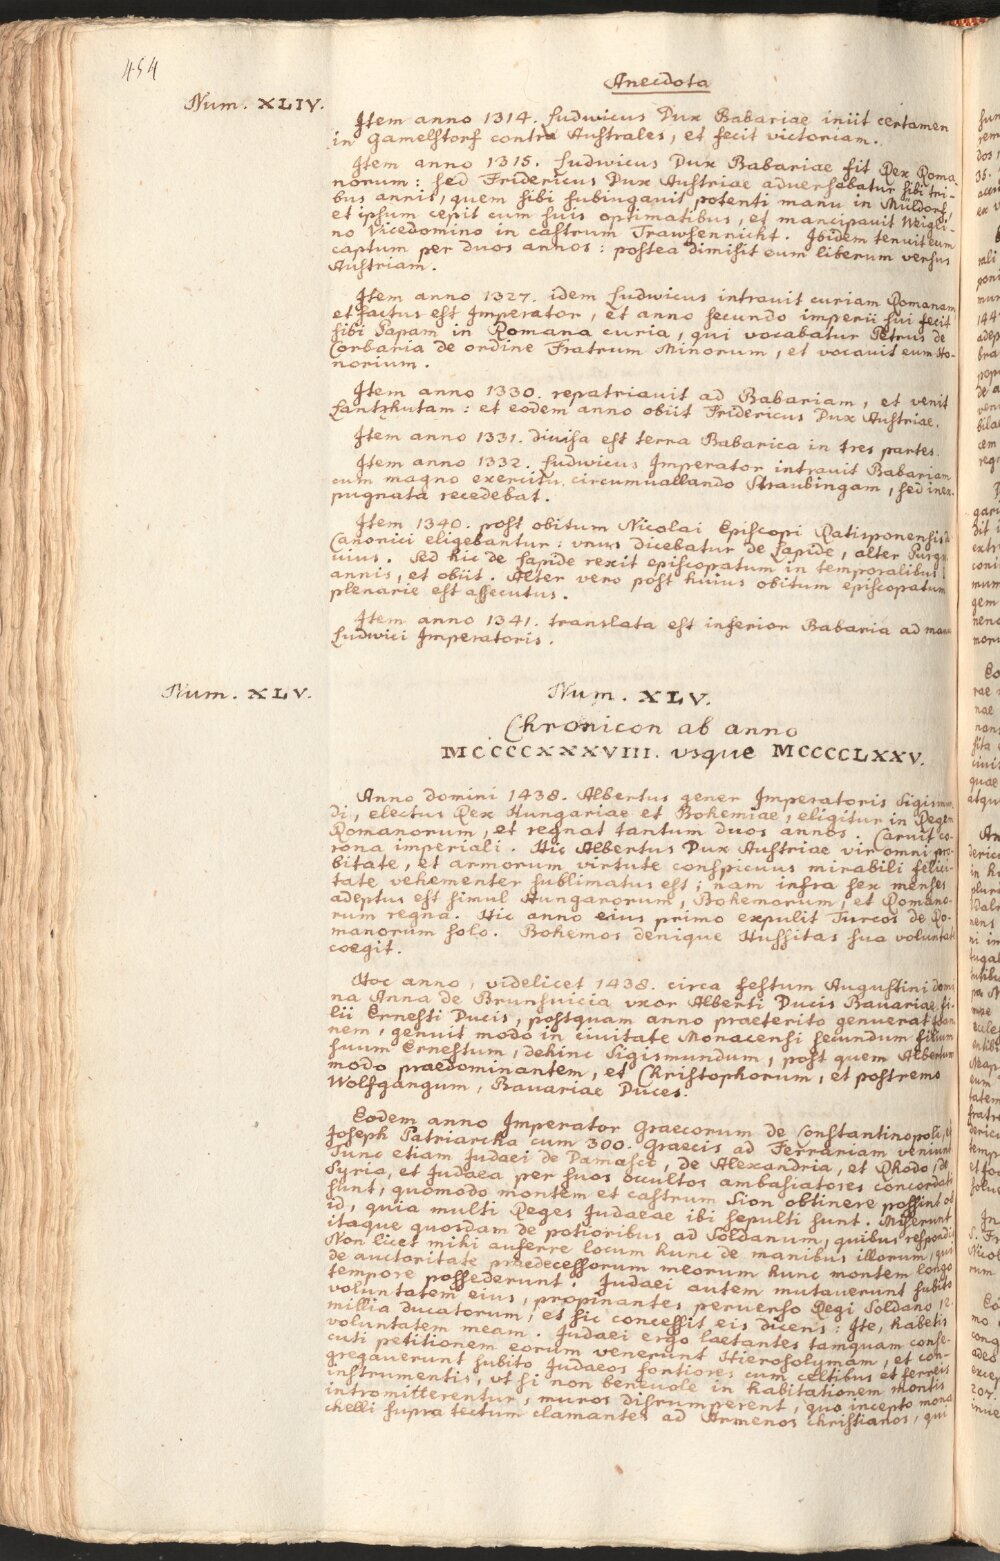 454
Anecdota
Num. XLIV.
Item anno 1314. Ludwicus Dux Babariae iniit certamen
in Gamelstorf contra Australes, et fecit victoriam.
Item anno 1315. Ludwicus Dux Babariae fit Rex Roma-
norum: sed Fridericus Dux Austriae adversabatur sibi tri-
bus annis, quem sibi subiugavit potenti manu in Müldorf,
et ipsum cepit cum suis optimatibus, et mancipavit Weigli-
no Vicedomino in castrum Trawsennicht. Ibidem tenuit eum
captum per duos annos: postea dimisit eum liberum versus
Austriam.
Item anno 1327. idem Ludwicus intravit curiam Romanam,
et factus est Imperator, et anno secundo imperii sui fecit
sibi Papam in Romana curia, qui vocabatur Petrus de
Corbaria de ordine Fratrum Minorum, et vocavit eum Ho-
norium.
Item anno 1330. repatriavit ad Babariam, et venit
Lantzhutam: et eodem anno obiit Fridericus Dux Austriae.
Item anno 1331. divisa est terra Babarica in tres partes.
Item anno 1332. Ludwicus Imperator intravit Babariam
cum magno exercitu, circumvallando Straubingam, sed inex-
pugnata recedebat.
Item 1340. post obitum Nicolai Episcopi Ratisponensis
Canonici eligebantur: vnus dicebatur de Lapide, alter
vius. Sed hic de Lapide rexit episcopatum in temporalibus
annis, et obiit. Alter vero post huius obitum episcopatum
plenarie est assecutus.
Item anno 1341. translata est inferior Babaria ad
Ludwici Imperatoris.
Num. XLV.
Num. XLV.
Chronicon ab anno
MCCCCXXXVIII. vsque MCCCCLXXV.
Anno domini 1438. Albertus gener Imperatoris Sigismun-
di, electus Rex Hungariae et Bohemiae, eligitur in Regem
Romanorum, et regnat tantum duos annos. Caruit co-
rona imperiali. Hic Albertus Dux Austriae vir omni pro-
bitate, et armorum virtute conspicuus mirabili felici-
tate vehementer sublimatus est; nam infra sex menses
adeptus est simul Hungarorum, Bohemorum, et Romano-
rum regna. Hic anno eius primo expulit Turcos de Ro-
manorum solo. Bohemos denique Hussitas sua voluntate
coegit.
Hoc anno, videlicet 1438. circa festum Augustini domi-
na Anna de Brunsuicia vxor Alberti Ducis Bauariae, fi-
lii Ernesti Ducis, postquam anno praeterito genuerat Ioan-
nem, genuit modo in civitate Monacensi secundum filium
suum Ernestum, dehinc Sigismundum, post quem Albertum
modo praedominantem, et Christophorum, et postremo
Wolfgangum, Bauariae Duces.
Eodem anno Imperator Graecorum de Constantinopoli, et
Joseph Patriarcha cum 300. Graecis ad Ferrariam veniunt
Tunc etiam Judaei de Damasco, de Alexandria, et Rhodo, de
Syria, et Judaea per suos occultos ambasiatores concordati
sunt, quomodo montem et castrum Sion obtinere possint ob
id, quia multi Reges Judaeae ibi sepulti sunt. Miserunt
itaque quosdam de potioribus ad Soldanum, quibus respondit
Non licet mihi auferre locum hunc de manibus illorum, qui
de auctoritate praedecessorum meorum hunc montem longo
tempore possederunt. Judaei autem mutaverunt subito
voluntatem eius, propinantes perverso Regi Soldano 12.
millia ducatorum, et sic concessit eis dicens: Ite, habetis
voluntatem meam. Judaei ergo laetantes tamquam conse-
cuti petitionem eorum venerunt Hierosolymam, et con-
gregaverunt subito Judaeos fortiores cum celtibus et ferreis
instrumentis, vt si non benevole in habitationem montis
intromitterentur, muros disrumperent, quo incepto mona
chelli supra tectum clamantes ad Armenos christianos, qui